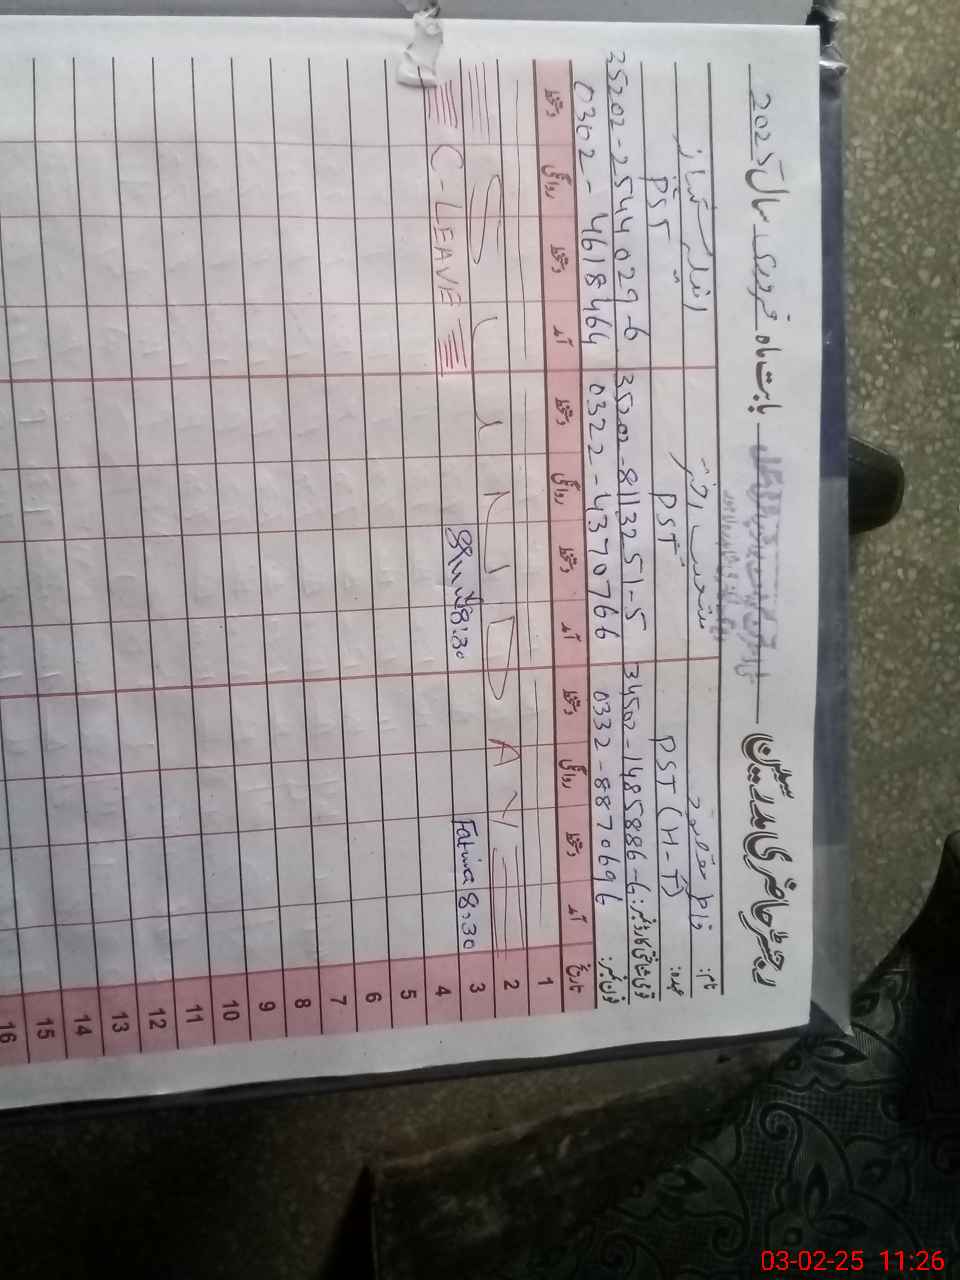 رجسٹر حاضری مدرسین بابت ماہ فروری سال 2025
نام:
عہدہ: PST (H-T) PST PST
قومی شناختی کارڈ نمبر: 34502-1485886-6 35202-8113251-5 35202-2544029-6
فون نمبر: 0332-8870696 0322-4370766 0302-4618464
تاریخ آمد دستخط روانگی دستخط آمد دستخط روانگی دستخط آمد دستخط روانگی دستخط
1
2
SUNDAY
3 Fatima 8:30 8:30 C-LEAVE
4
5
6
7
8
9
10
11
12
13
14
15
16
03-02-25 11:26